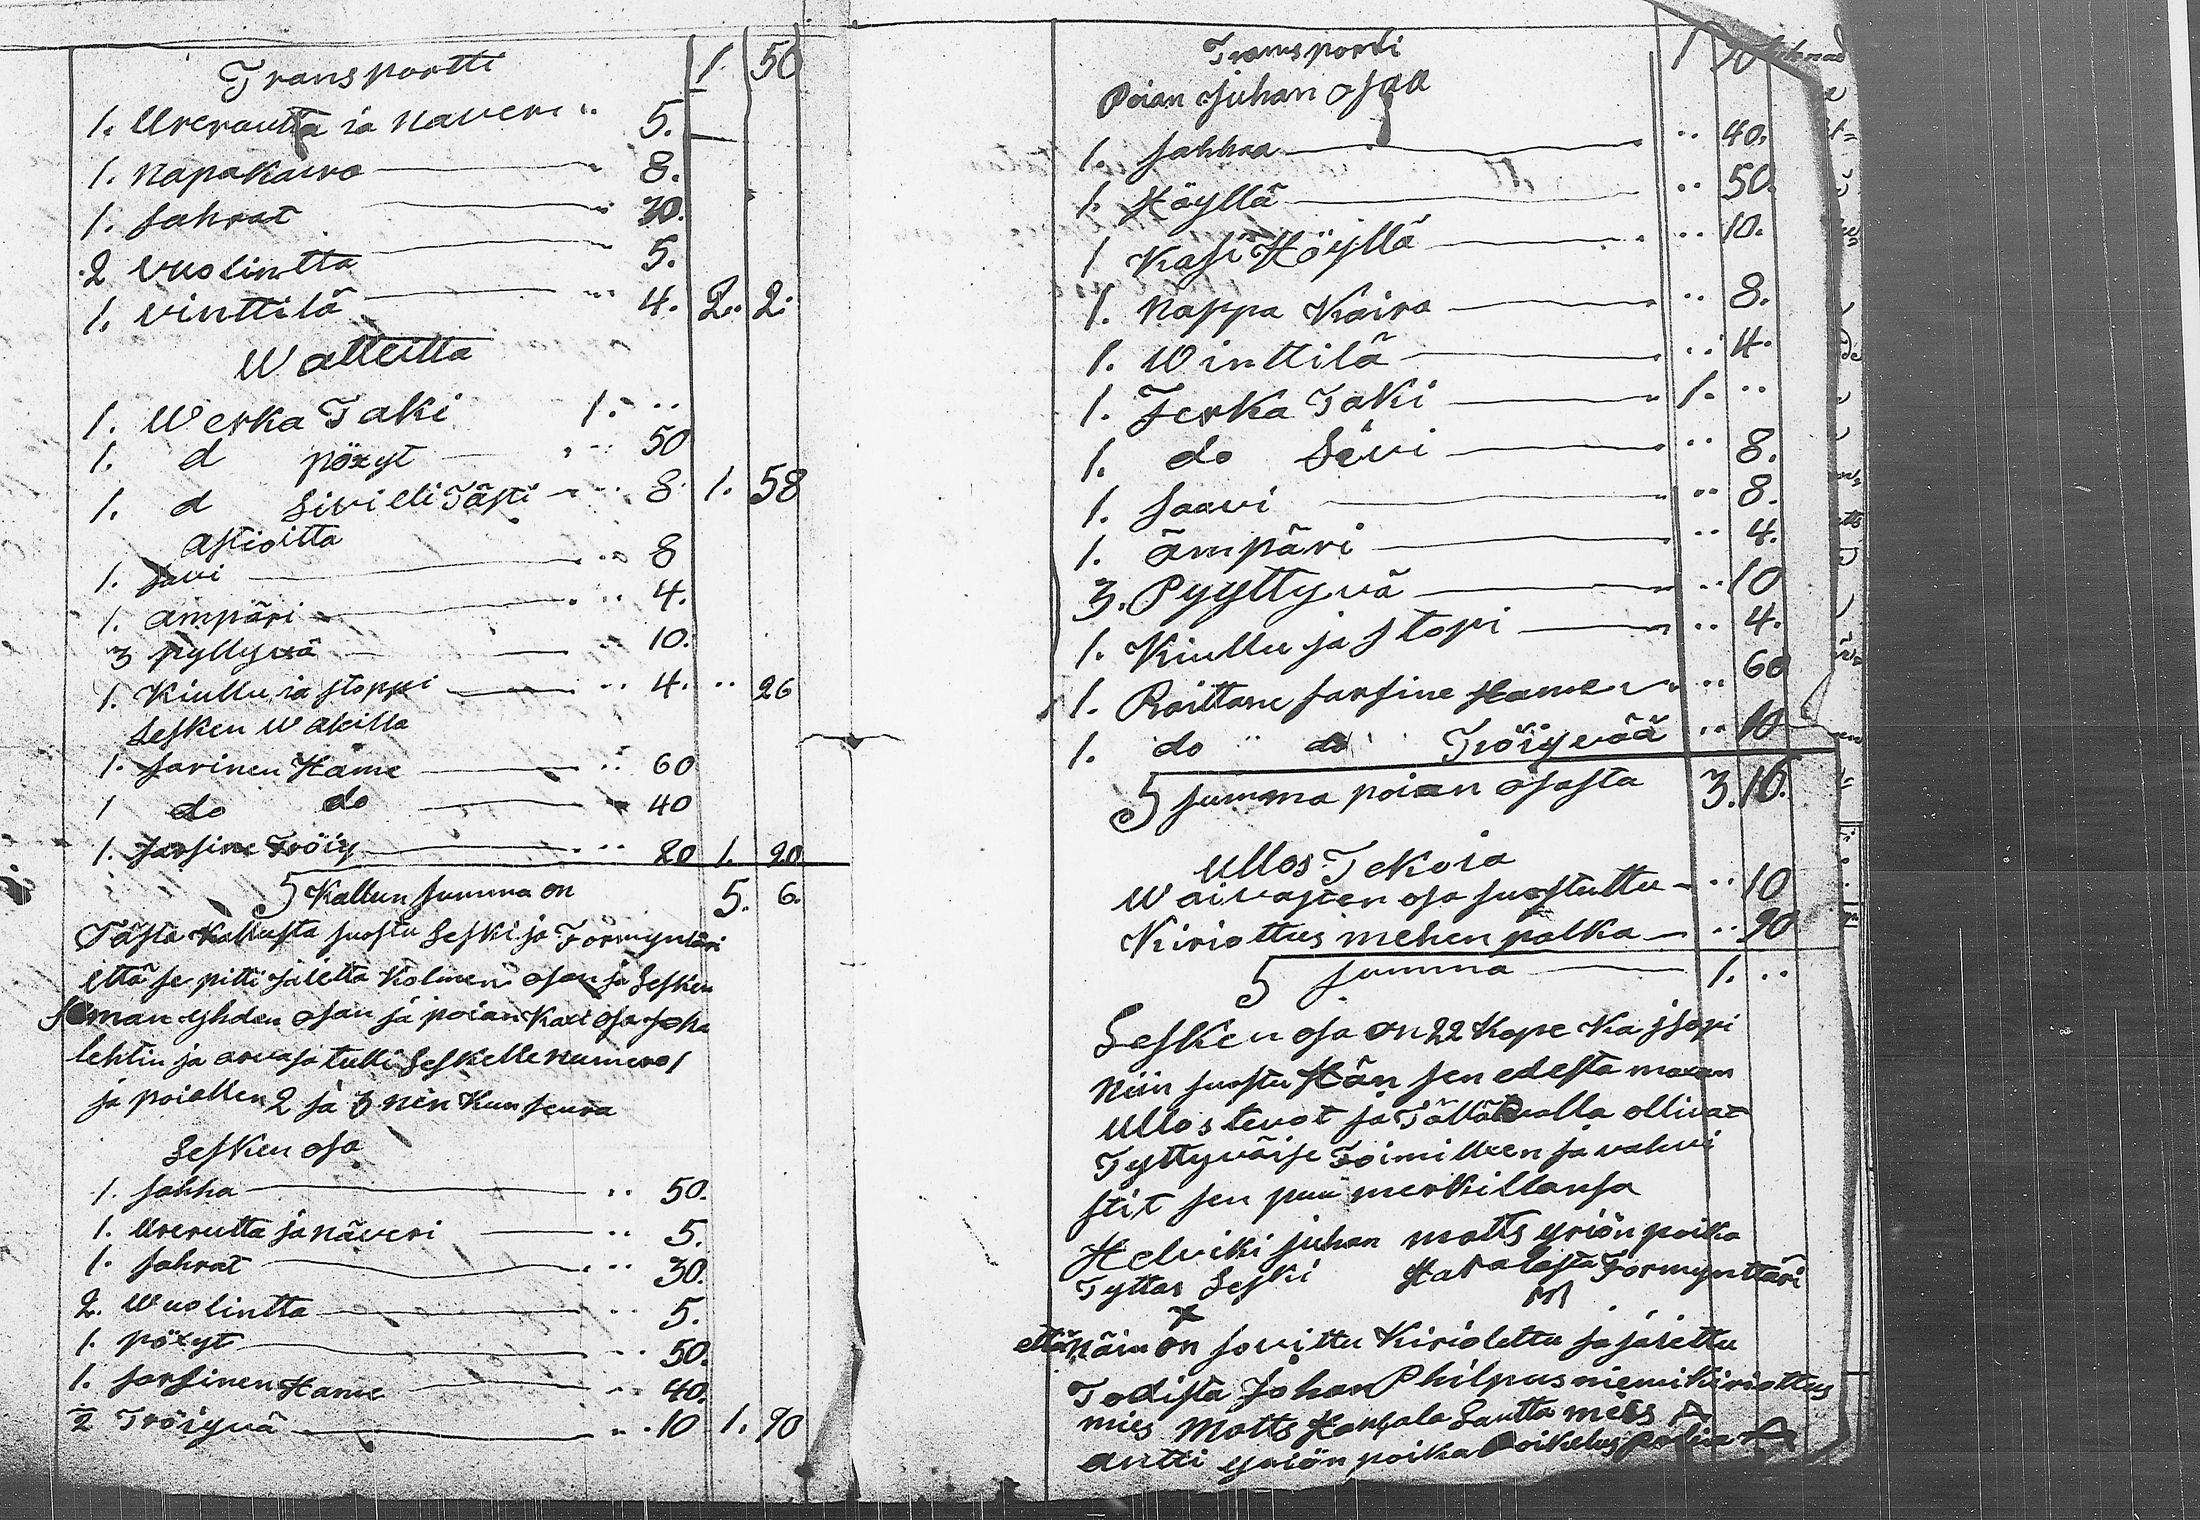 Transportti 1. 50
1. Urerautta ia naveri .. 5.
1. Napakaira .. 8.
1. sahrat .. 30.
2 vuolintta .. 5.
1. vinttilä .. 4. 2.. 2.
Watteilla
1. Werka Taki 1. ..
1. d pöxyt .. 50
1. d Livilli Täkki .. 8 1. 58
astioitta
1. savi .. 8
1. ämpäri .. 4.
3 pyttyvä .. 10.
1. Kiullu ia stoppi .. 4. .. 26
Lesken Wateilla
1. sarinen Hame .. 60
1 do do .. 40
1. sarsine Tröiy .. 20 1. 20
S Kallun summa on 5. 6.
Tästä kallusta suostu Leski ja Formyntäri
että se pitti jaletta Kolmen osan ja Lesken
soman yhden osan ja poian Kaxi osa joka
lehtin ja arvasa tulli Leskelle numero 1
ja poiallen 2 ja 3 nin kun seura
Lesken osa
1. sahha .. 50.
1. Urerutta ja näveri .. 5.
1. sahrat .. 30.
2. Wuolintta .. 5.
1. pöxyt .. 50.
1. sarsinen Hame .. 40.
2 Tröiyvä .. 10 1. 90
Transporti 1 90
Poian Juhan osaa
1. sahhaa .. 40.
1. Höyllä .. 50.
1 Kasi Höyllä .. 10.
1. Nappa Kaira .. 8.
1. Winttilä .. 4.
1. Ferka Taki 1. ..
1. do Livi .. 8.
1. saavi .. 8.
1. ämpäri .. 4.
3. Pyyttyvä .. 10
1. Kiullu ja stopi .. 4.
1. Raittane sarsine Hame .. 60
1. do do Tröiyvää .. 10
S summa poian osasta 3. 16.
Ullos Tekoia
Waivasten osa suostuttu .. 10
Kiriottus mehen palka .. 90
S summa 1. ..
Lesken osa on 22 Kope Ka jsopi
niin suostu Hän sen edestä maxan
Ullos teuot ja Tällä tavalla ollivat
Tyttyväise Toimilleen ja vahvi
stit sen puu merkillansa
Helviki juhan matts yriön poika
Tyttar Leski Formynttäri
X
että näin on sovittu Kirioletta ja jaiettu
Todista Johan Philpusniemi kiriottus
mies Matts Lautta mies
antti yriön poika